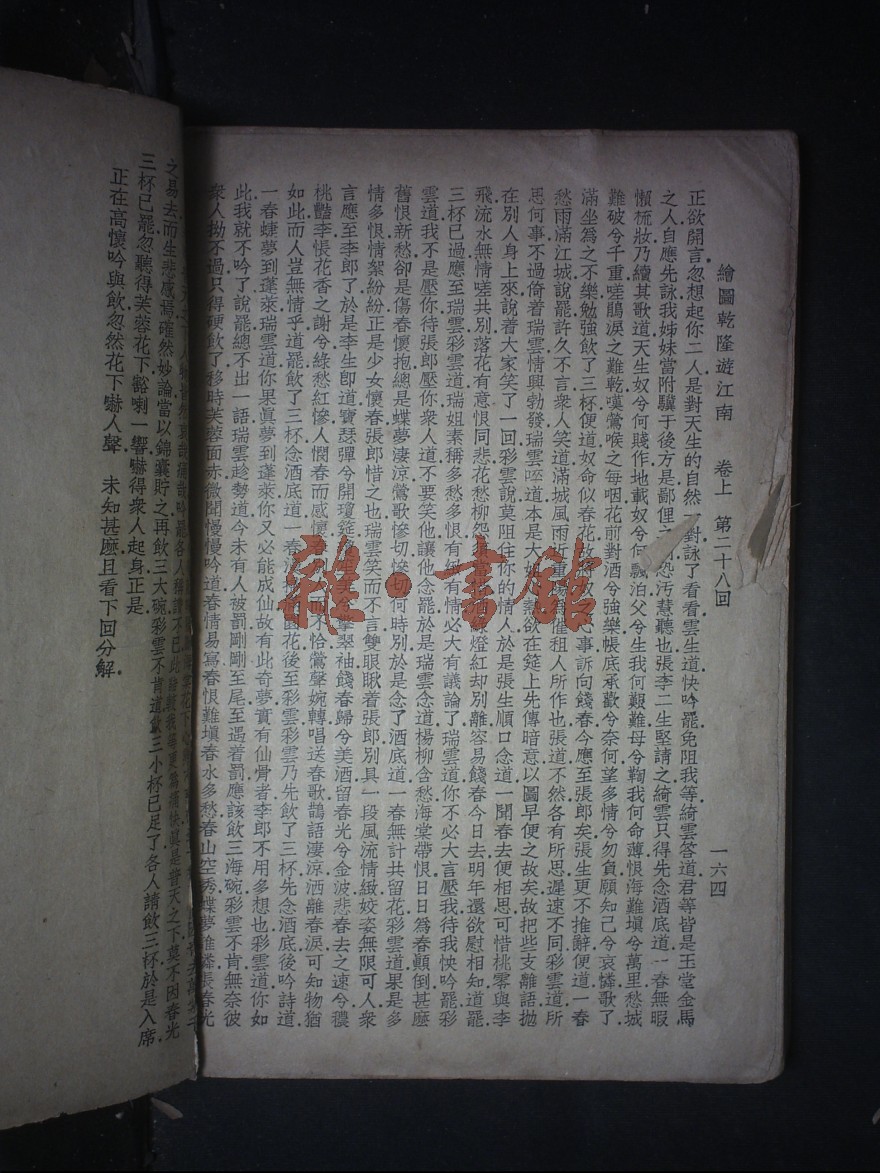 繪圖乾隆遊江南 卷上 第二十八回 一六四
正欲開言忽想起你二人是對天生的自然一對詠了看看雲生道快吟罷免阻我等綺雲答道君等皆是玉堂金馬
之人自應先詠我姊妹當附驥于後方是鄙俚之 恐污慧聽也張李二生堅請之綺雲只得先念酒底道一春無暇
懶梳妝乃續其歌道天生奴兮何賤作地載奴兮何飄泊父兮生我何艱難母兮鞠我何命薄恨海難填兮萬里愁城
難破兮千重嗟鵑淚之難乾嘆鶯喉之每咽花前對酒兮強樂帳底承歡兮奈何望多情兮勿負願知己兮哀憐歌了
滿坐為之不樂勉強飲了三杯便道奴命似春花 事訴向餞春今應至張郎矣張生更不推辭便道一春
愁雨滿江城說罷許久不言衆人笑道滿城風雨近重陽 催租人所作也張道不然各有所思遲速不同彩雲道所
思何事不過倚着瑞雲情興勃發瑞雲 道本是大 欲在筵上先傳暗意以圖早便之故矣故把些支離語拋
在別人身上來說着大家笑了一回彩雲說莫阻住你的情人於是張生順口念道一聞春去便相思可惜桃零與李
飛流水無情嗟共別落花有意恨同悲花愁柳怨 燈紅却別離容易餞春今日去明年還欲慰相知道罷
三杯已過應至瑞雲彩雲道瑞姐素稱多愁多恨有 有情必大有議論了瑞雲道你不必大言壓我待我怏吟罷彩
雲道我不是壓你待張郎壓你衆人道不要笑他讓他念罷於是瑞雲念道楊柳含愁海棠帶恨日日為春顛倒甚麼
舊恨新愁卻是傷春懷抱總是蝶夢淒涼鶯歌慘切慘切何時別於是念了酒底道一春無計共留花彩雲道果是多
情多恨情絮紛紛正是少女懷春張郎惜之也瑞雲笑而不言雙眼瞅着張郎別具一段風流情緻姣姿無限可人衆
言應至李郎了於是李生卽道寶瑟彈兮開瓊筵 翠袖餞春歸兮美酒留春光兮金波悲春去之速兮禯
桃豔李悵花香之謝兮綠愁紅慘人憫春而感懷 而不恰鶯聲婉轉唱送春歌鵲語淒涼洒離春淚可知物猶
如此而人豈無情乎道罷飲了三杯念酒底道一春 花後至彩雲彩雲乃先飲了三杯先念酒底後吟詩道
一春蝶夢到蓬萊瑞雲道你果眞夢到蓬萊你又必能成仙故有此奇夢實有仙骨者李郎不用多想也彩雲道你如
此我就不吟了說罷總不出一語瑞雲趁勢道今未有人被罰剛剛至尾至遇着罰應該飲三海碗彩雲不肯無奈彼
衆人拗不過只得硬飲了移時芙蓉面赤微開慢慢吟道春情易寫春恨難塡春水多愁春山空秀蝶夢誰憐長春光
之易去而生悲感焉確然妙論當以錦囊貯之再飲三大碗彩雲不肯道飲三小杯已足了各人請飲三杯於是入席
三杯已罷忽聽得芙蓉花下豁喇一響嚇得衆人起身正是
正在高懷吟與飲忽然花下嚇人聲 未知甚麼且看下回分解
雜·書館